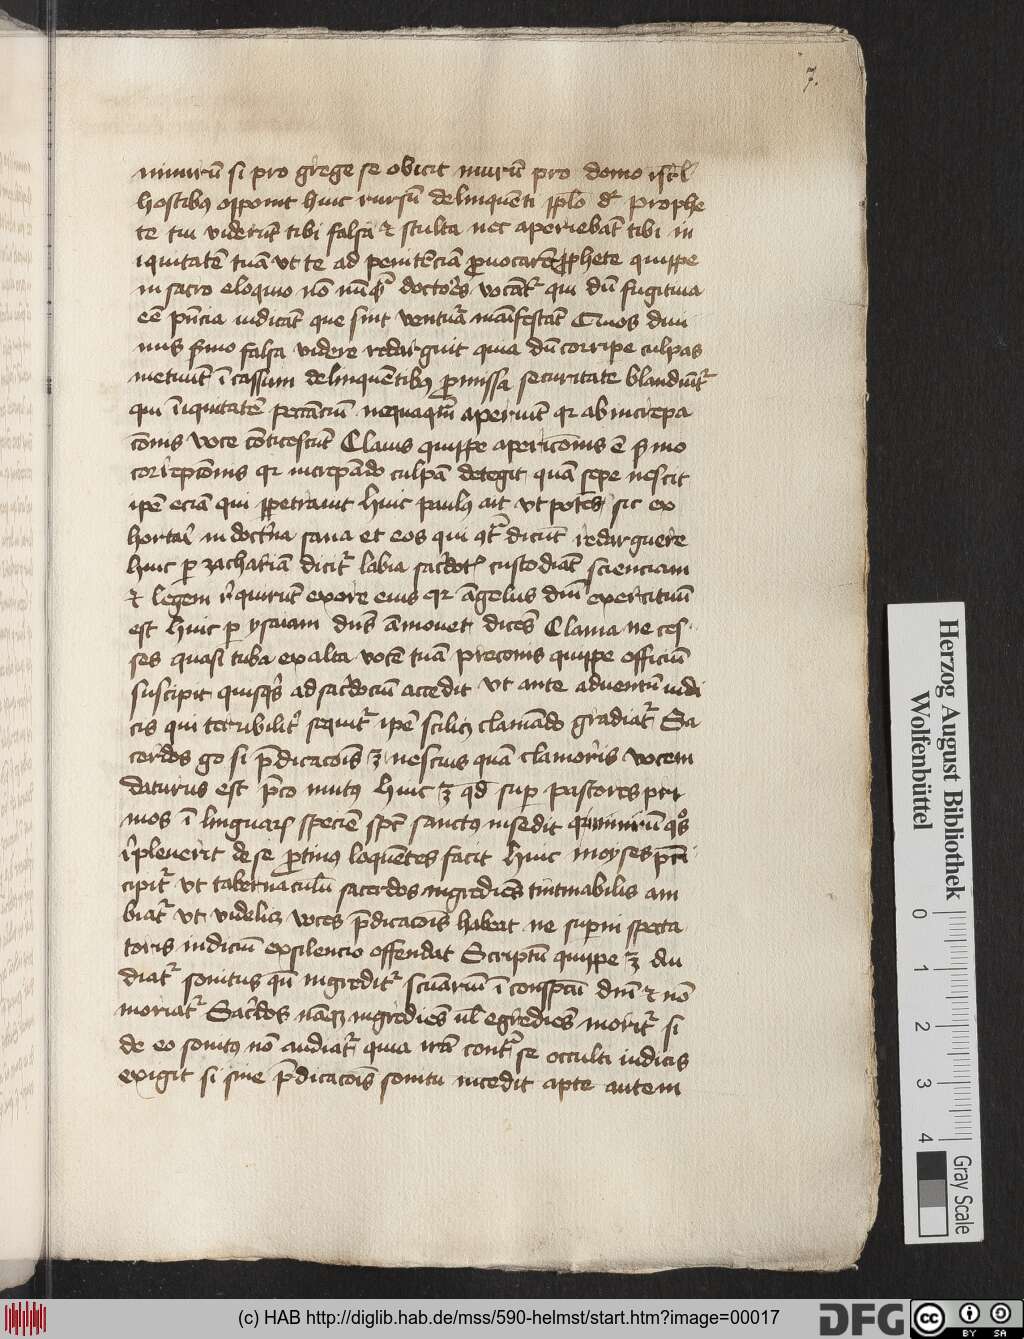 7.
nimirū si pro grege se obicit murū pro domo isrl
hostibus opponit Huic rursū delinquēti pplo dr prophe
te tui viderūt tibi falsa et stulta nec aperiebāt tibi in
iquitatē tuā ut te ad penitēciā provocarēt prophete quippe
in sacro eloquio nō nūqm doctores vocātur qui dū fugitiva
eē pñcia indicāt que sint ventura manifestāt Quos divi
nus sermo falsa videre redarguit quia dū corripe culpas
metuūt ī cassum delinquētibus promissa securitate blandiūtur
qui īiquitatē peccanciū nequaqm aperiūt qr ab increpa
cōnis voce cōticescūt Clavis quippe apericōnis ē sermo
correpcōnis qr increpādo culpā detegit quā sepe nescit
ipē eciā qui perpetravit Huic paulus ait ut potēs sit ex
hortari in doctrina sana et eos qui contradicūt redarguere
huic per zachariā dicitur labia sacerdotis custodiāt scienciam
et legem requirūt ex ore eius qr angelus dñi exercituū
est Huic per ysaiam dñs āmonet dicēs Clama ne ces
ses quasi tuba exalta vocē tuā preconis quippe officiū
suscipit quisquis ad sacerdociū accedit ut ante adventū iudi
cis qui terribiliter sequitur ipē scilicet clamādo gradiatur Sa
cerdos go si predicacois est nescius quā clamoris vocem
daturus est preco mutus Huic est qd super pastores pri
mos ī linguarum speciē spc sanctus insedit qr nimirū quos
repleverit de se protinus loquētes facit Huic moysi preci
pitur ut tabernaculū sacerdos ingrediēs tintinabilis am
biatur ut videlicet voces predicacois habeat ne superni specta
toris iudiciū ex silencio offendat Scriptū quippe est au
diatur sonitus qn ingreditur sctuariū ī conspectu dñi et nō
moriatur Sacerdos nāque ingrediēs vel egrediēs moritur si
de eo sonitus nō audiatur quia irā contra se occulti iudicis
exigit si sine predicacois sonitu incedit apte autem
Herzog August Bibliothek
Wolfenbüttel
0 1 2 3 4
Gray Scale
(c) HAB http://diglib.hab.de/mss/590-helmst/start.htm?image=00017
DFG
cc
BY SA